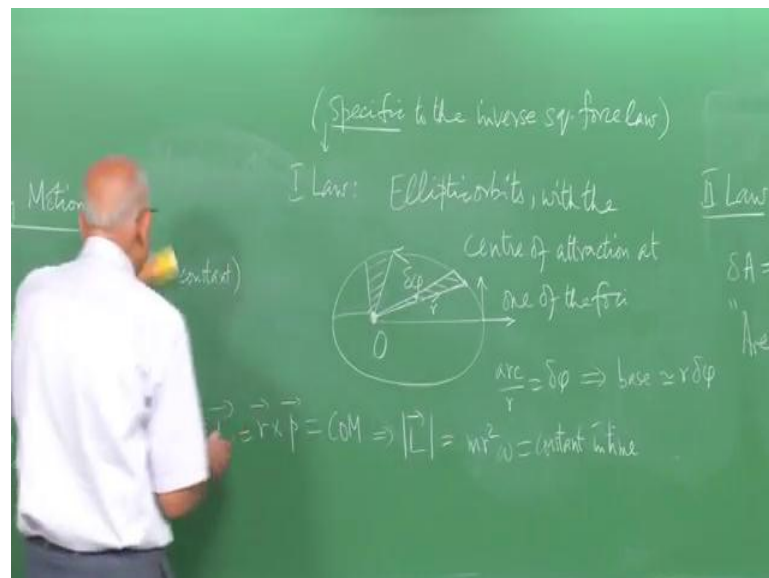 (Specific to the inverse sq. force law)
Motion
I Law: Elliptic orbits, with the
II Law
centre of attraction at
constant)
δφ
δA =
r
one of the foci
"
O
Are
arc/r = δφ ⇒ base ≃ rδφ
L⃗ = r⃗ × p⃗ = COM ⇒ |L⃗| = mr²ω = constant in time